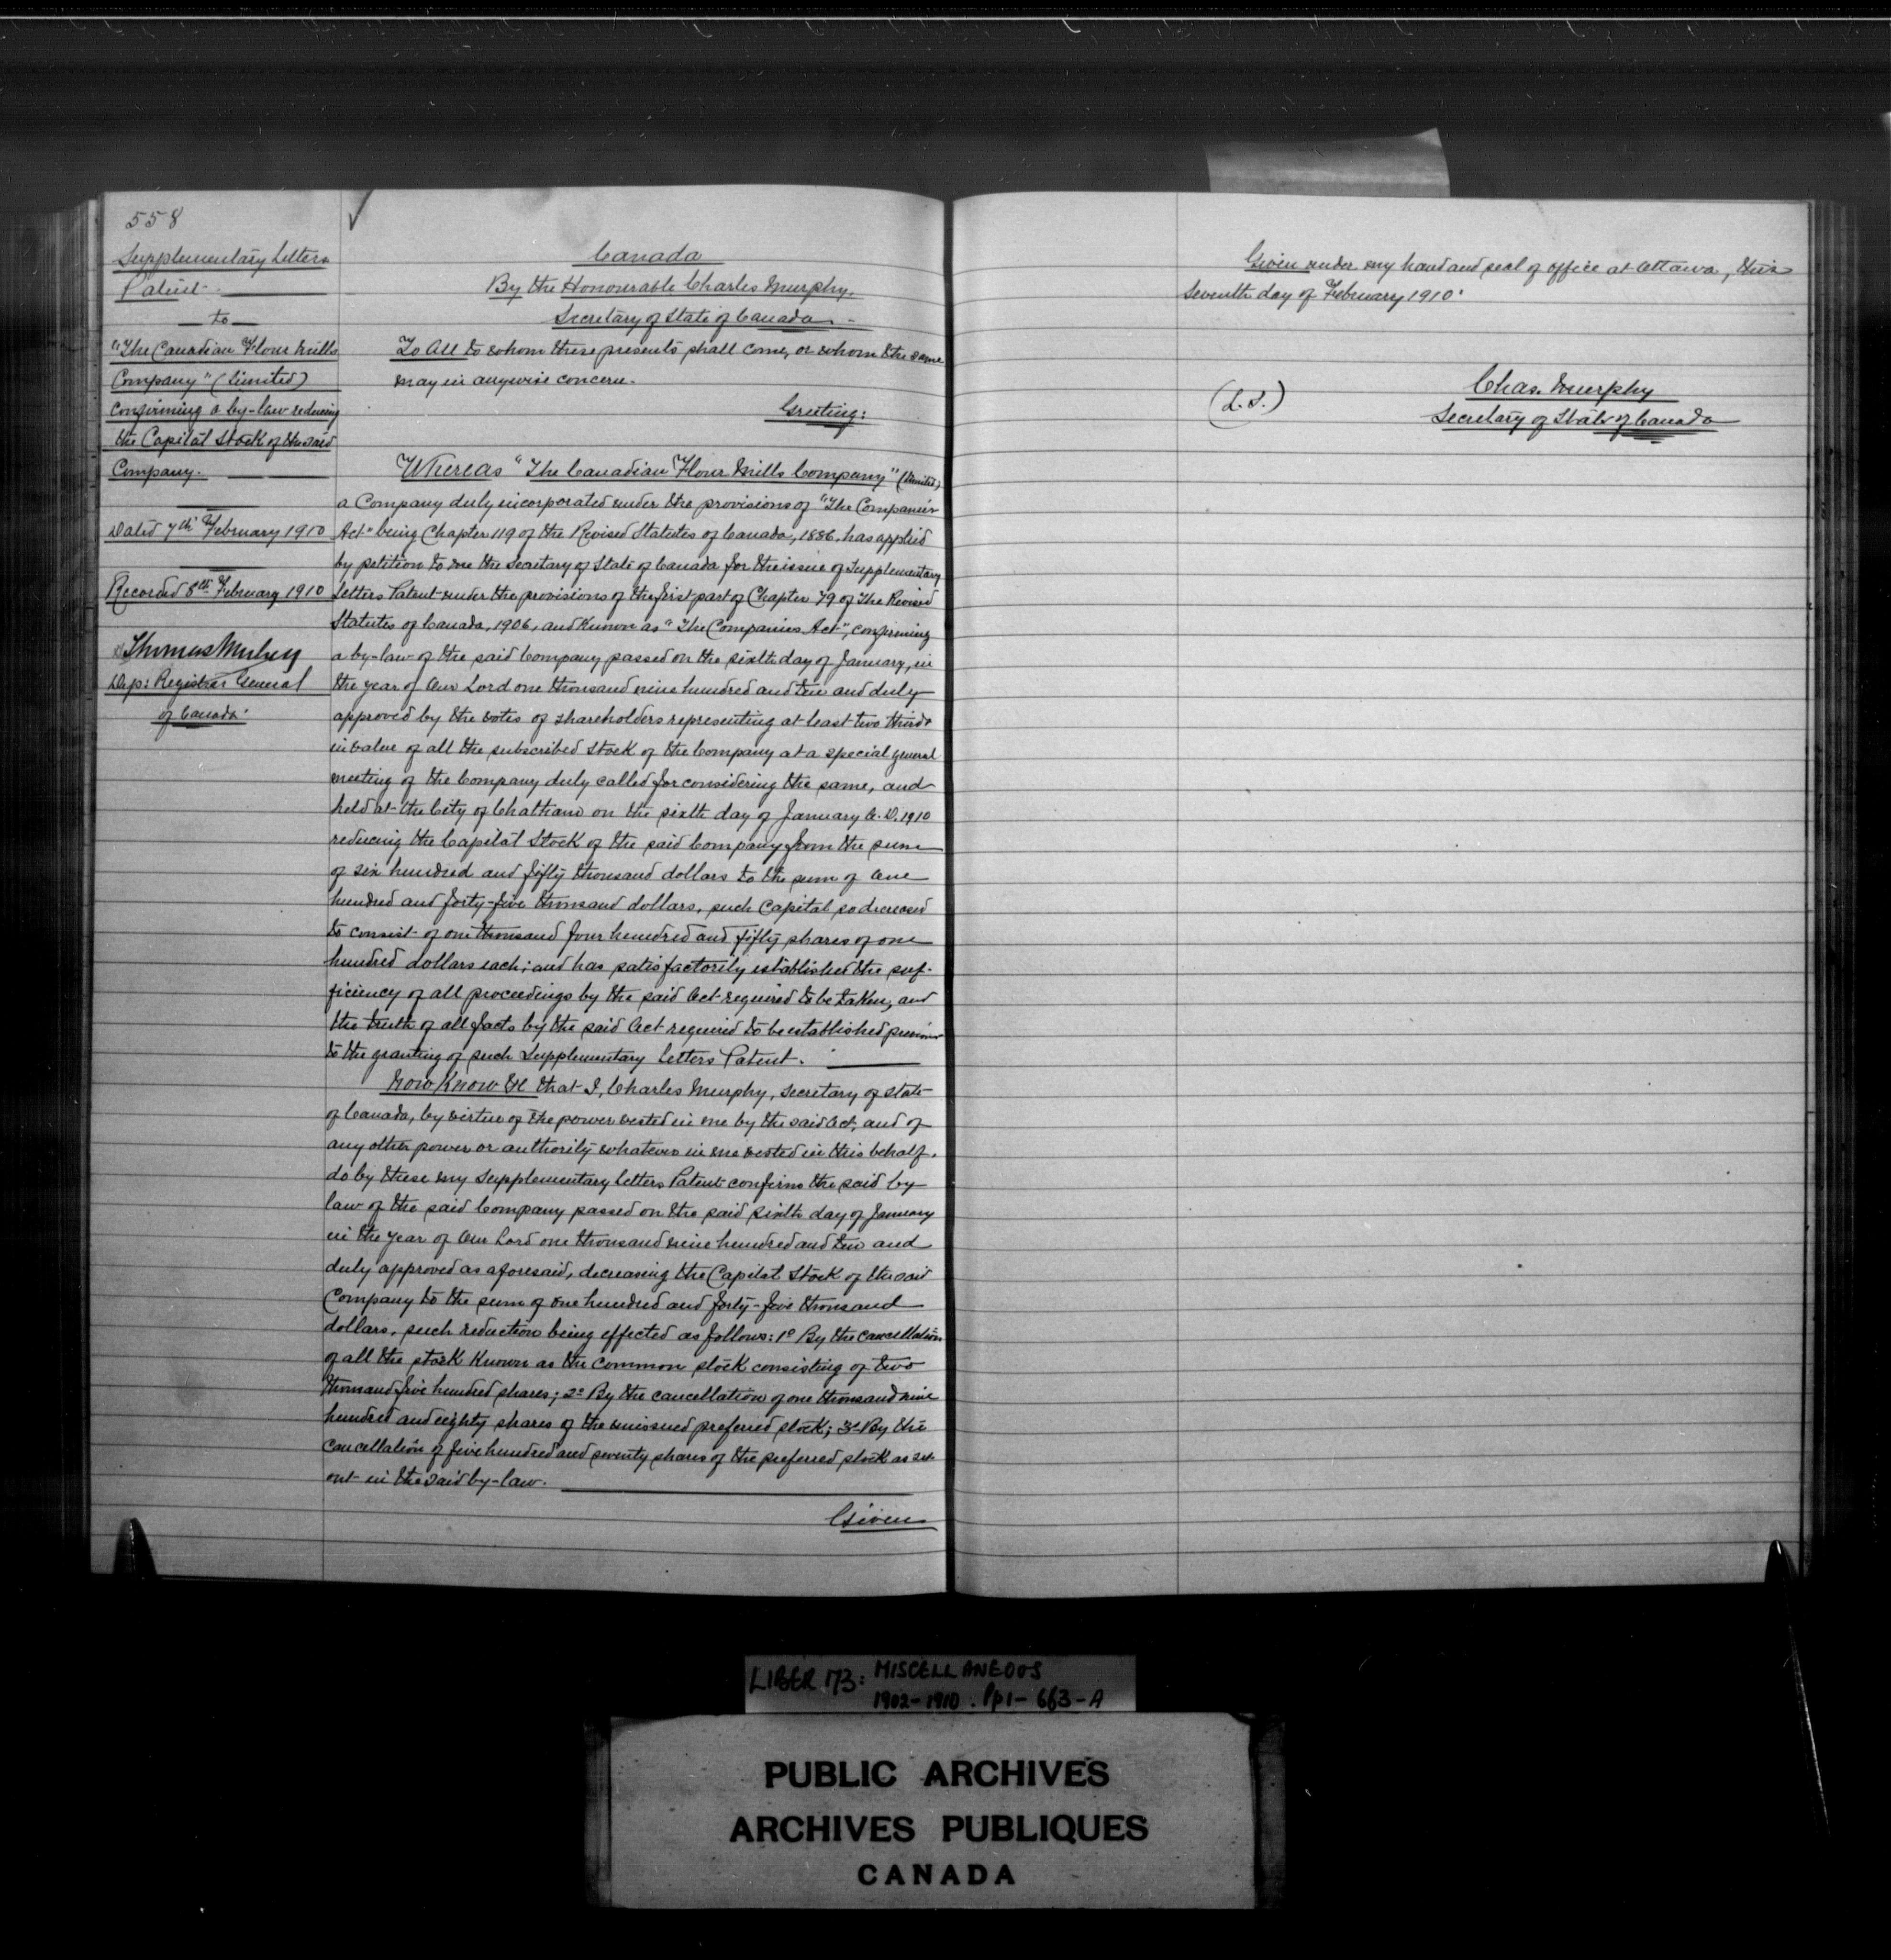 558
Supplementary Letters
Patent
to
"The Canadian Flour Mills
Company" (Limited)
confirming a by-law reducing
the Capital Stock of the said
Company.
Dated 7th February 1910
Recorded 8th February 1910
Thomas Mulvey
Dep: Registrar General
of Canada.
Canada
By the Honourable Charles Murphy,
Secretary of State of Canada.
To All to whom these presents shall come, or whom the same
may in anywise concern.
Greeting:
Whereas "The Canadian Flour Mills Company" (Limited)
a Company duly incorporated under the provisions of "The Companies
Act" being Chapter 119 of the Revised Statutes of Canada, 1886, has applied
by petition to me the Secretary of State of Canada for the issue of Supplementary
Letters Patent under the provisions of the first part of Chapter 79 of The Revised
Statutes of Canada, 1906, and known as "The Companies Act", confirming
a by-law of the said Company passed on the sixth day of January, in
the year of Our Lord one thousand nine hundred and ten and duly
approved by the votes of shareholders representing at least two thirds
in value of all the subscribed stock of the Company at a special general
meeting of the Company duly called for considering the same, and
held at the City of Chatham on the sixth day of January A.D. 1910
reducing the Capital Stock of the said Company from the sum
of six hundred and fifty thousand dollars to the sum of One
hundred and forty-five thousand dollars, such Capital so decreased
to consist of one thousand four hundred and fifty shares of one
hundred dollars each; and has satisfactorily established the suf-
ficiency of all proceedings by the said Act required to be taken, and
the truth of all facts by the said Act required to be established previous
to the granting of such Supplementary Letters Patent.
Now Know Ye that I, Charles Murphy, Secretary of State
of Canada, by virtue of the power vested in me by the said Act, and of
any other power or authority whatever in me vested in this behalf,
do by these my Supplementary Letters Patent confirm the said by
law of the said Company passed on the said sixth day of January
in the year of Our Lord one thousand nine hundred and ten and
duly approved as aforesaid, decreasing the Capital Stock of the said
Company to the sum of one hundred and forty-five thousand
dollars, such reduction being effected as follows: 1º By the cancellation
of all the stock known as the common stock consisting of two
thousand five hundred shares; 2º By the cancellation of one thousand nine
hundred and eighty shares of the unissued preferred stock; 3º By the
cancellation of five hundred and seventy shares of the preferred stock as set
out in the said by-law.
Given
Given under my hand and seal of office at Ottawa, this
seventh day of February 1910.
(L.S.)
Chas. Murphy
Secretary of State of Canada
LIBER 173: MISCELLANEOUS
1902-1910. Pp1-663-A
PUBLIC ARCHIVES
ARCHIVES PUBLIQUES
CANADA